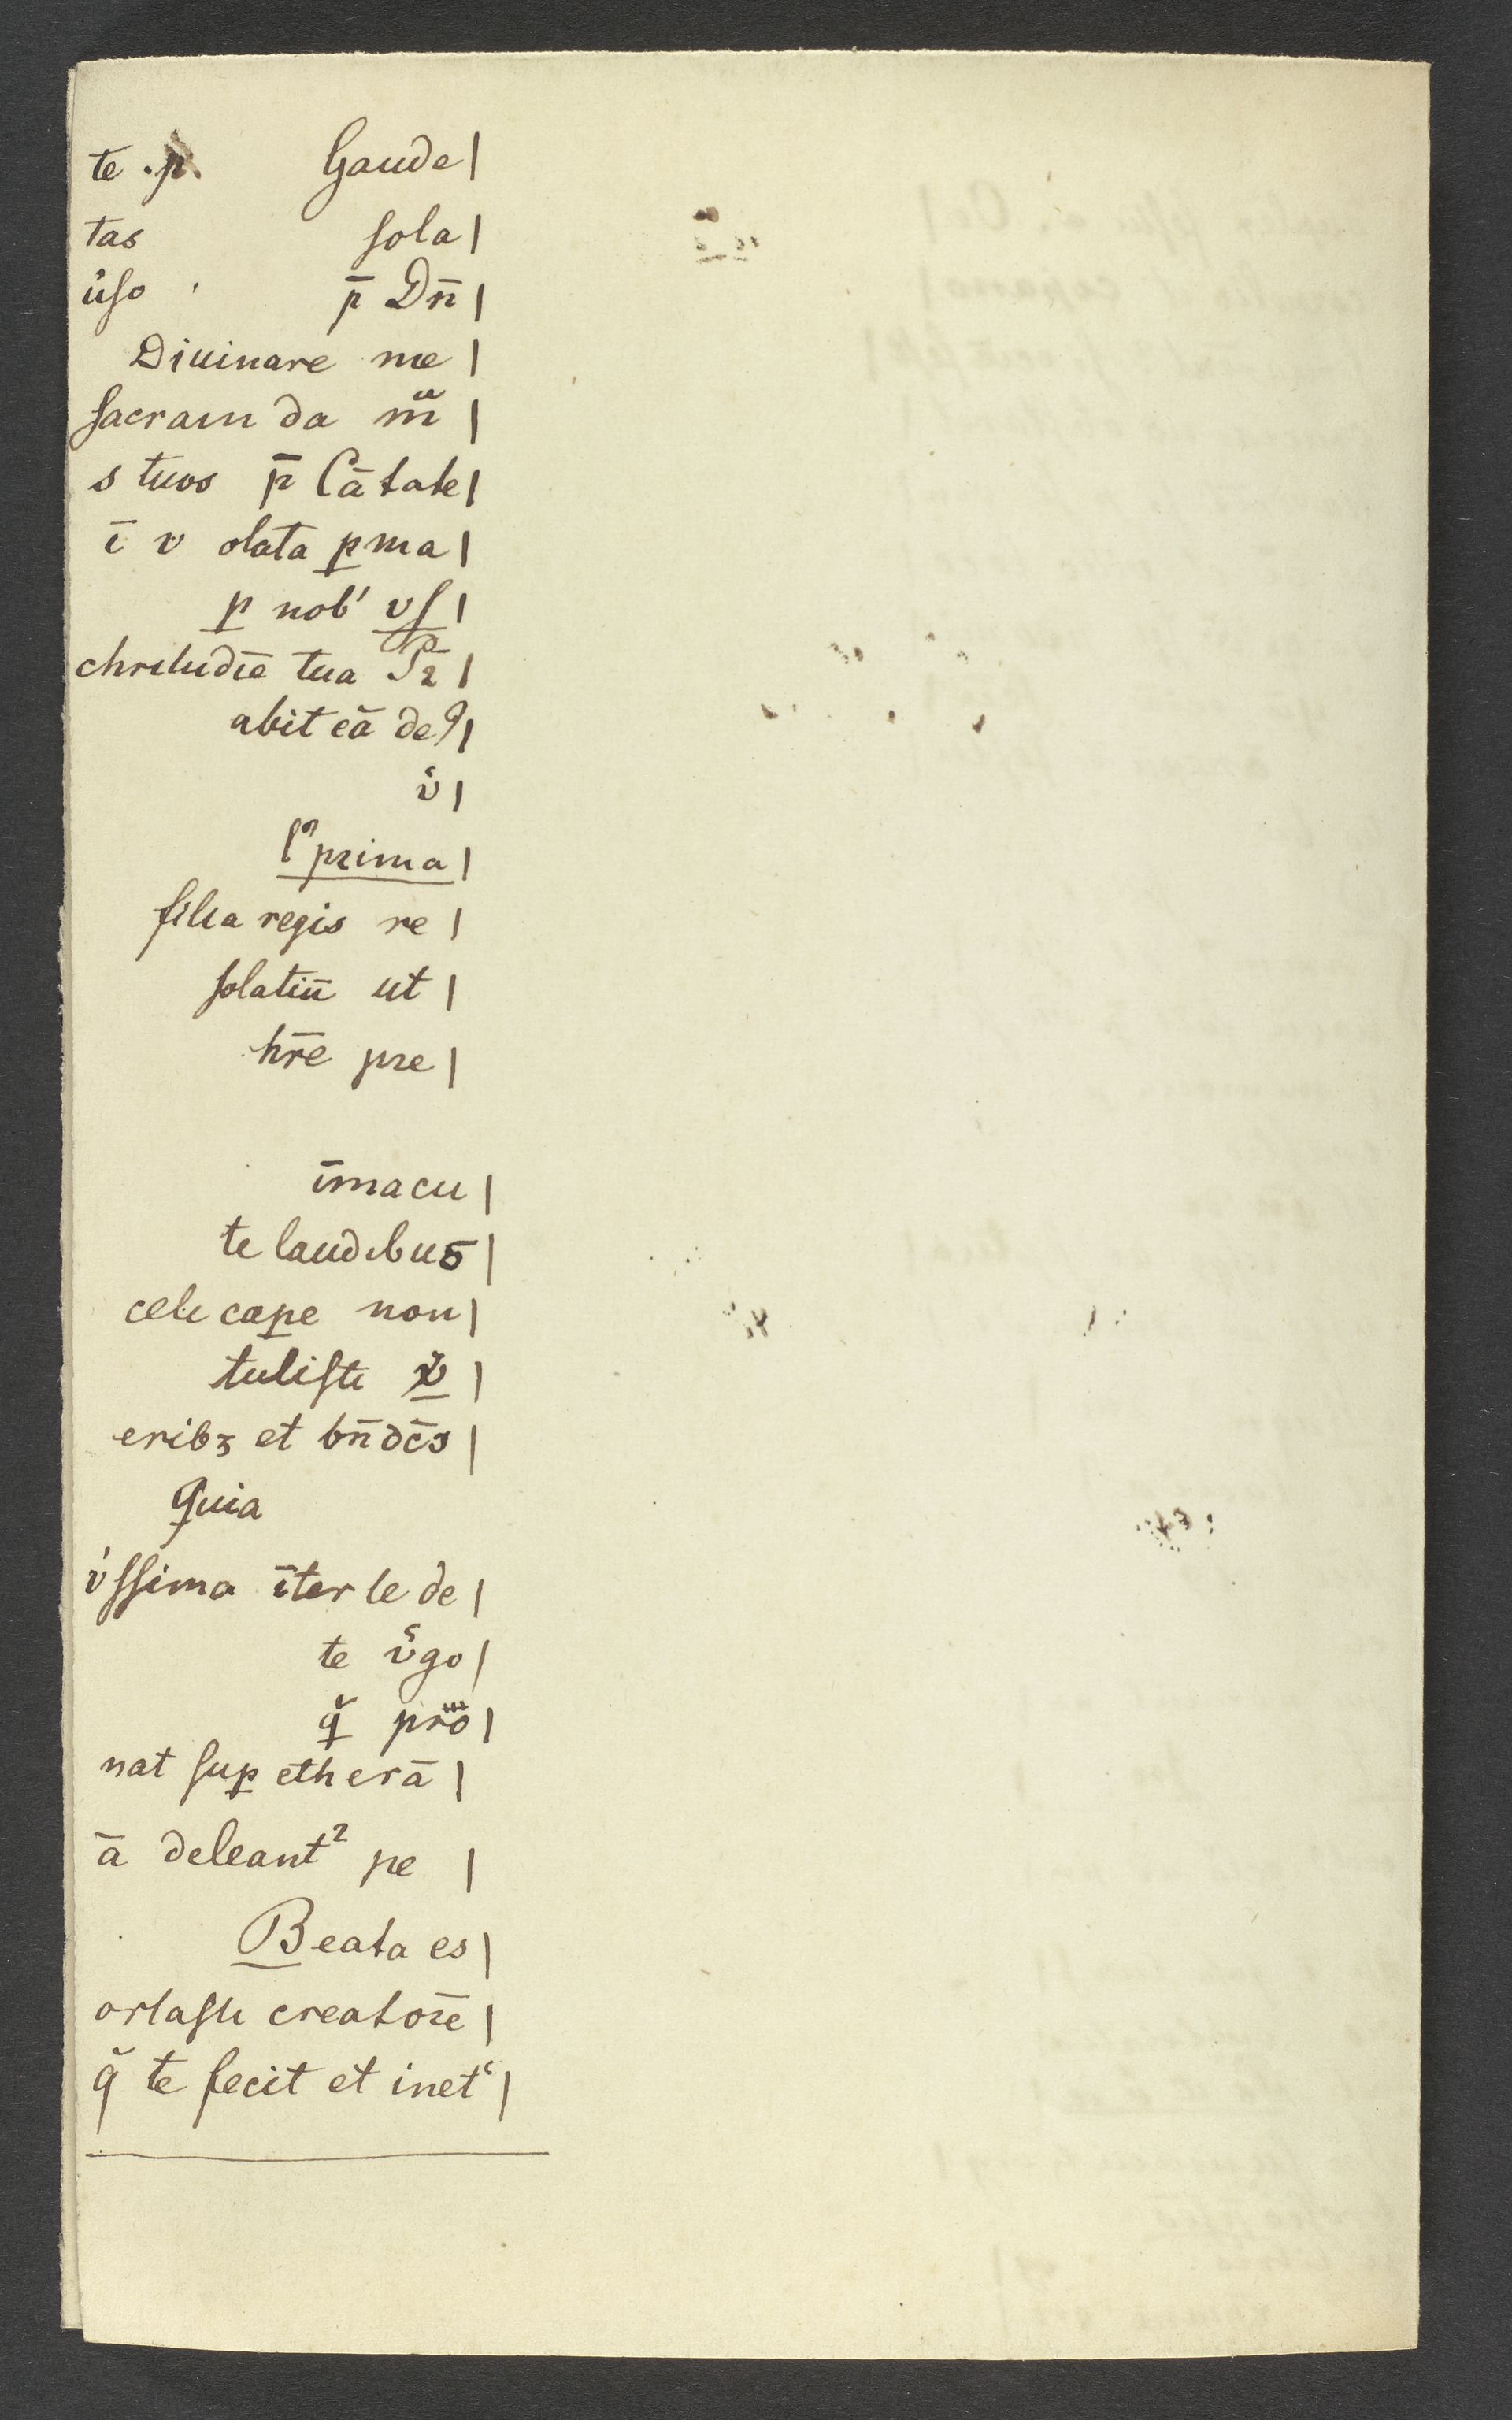 te .p. Gaude|
tas sola|
úſo ' p̄ Dn̄|
Diuinare me|
ſacram da m̃|
s tuos p̄ Cātate|
ī v olata ꝑma|
ꝑ nob' vſ|
abit eā de9|
v̆|
prima|
filia regis re|
ſolatiū ut|
hr̄e pre|
īmacu|
te laudibus|
celi caꝑe non|
tuliſti v̆|
eribꝫ et bn̄dc̄s|
Quia
v́ſſima īter le de|
te v̆go|
q̆ pro|
nat ſuꝑ etherā|
ā deleant² pe|
Beata es|
ortaſti creatorē|
q̆ te fecit et inet‘|